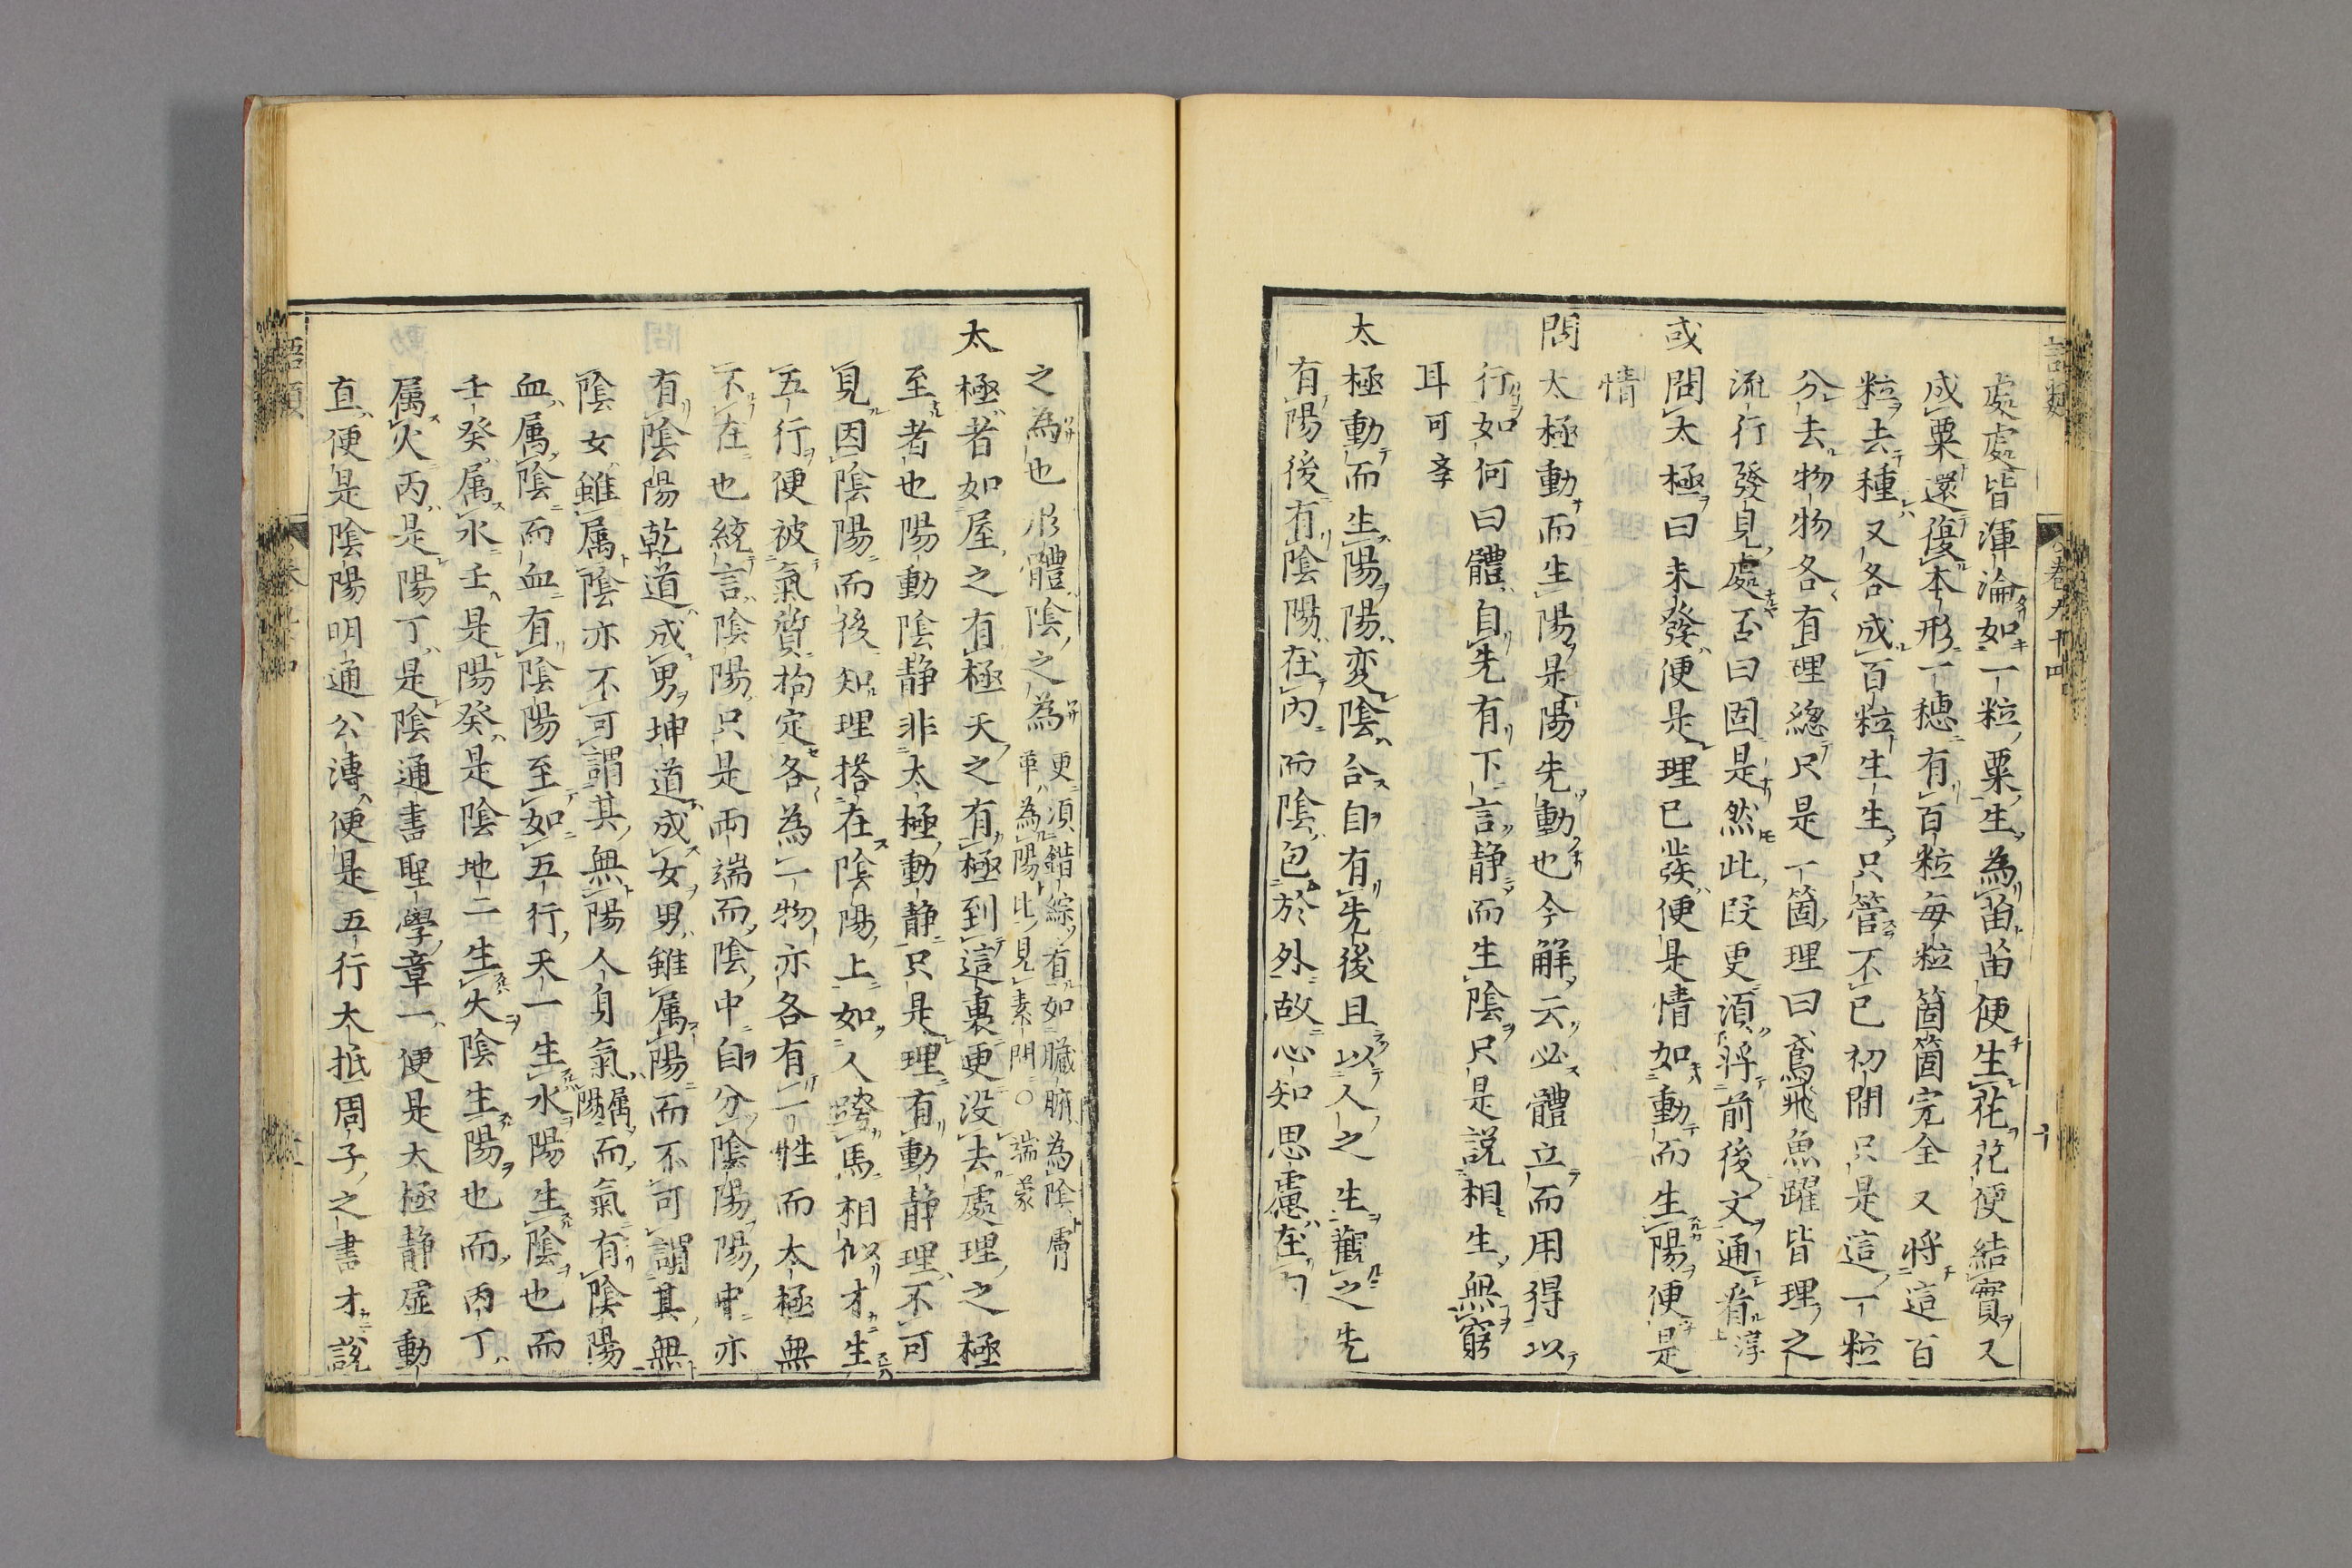 語類
卷九十四
處處皆渾淪如一粒粟生為苗苗便生花花便結實又
成粟還復本形一穗有百粒每粒箇箇完全又將這百
粒去種又各成百粒生生只管不已初間只是這一粒
分去物物各有理緫只是一箇理曰鳶飛魚躍皆理之
流行發見處否曰固是然此段更須將前後文通看淳
或問太極曰未發便是理已發便是情如動而生陽便是
情
問太極動而生陽是陽先動也今解云必體立而用得以
行如何曰體自先有下言静而生陰只是説相生無窮
耳可孝
太極動而生陽陽変陰合自有先後且以人之生觀之先
有陽後有陰陽在内而陰包於外故心知思慮在内
之為也形體陰之為
更須錯綜有如臟腑為陰膚
革為陽此見素問○端蒙
太極者如屋之有極天之有極到這裏更没去處理之極
至者也陽動陰静非太極動静只是理有動静理不可
見因陰陽而後知理搭在陰陽上如人跨馬相似才生
五行便被氣質拘定各為一物亦各有一性而太極無
不在也統言陰陽只是兩端而陰中自分陰陽陽中亦
有陰陽乾道成男坤道成女男雖属陽而不可謂其無
陰女雖属陰亦不可謂其無陽人身氣属陽而氣有陰陽
血属陰而血有陰陽至如五行天一生水陽生陰也而
壬癸属水壬是陽癸是陰地二生火陰生陽也而丙丁
属火丙是陽丁是陰通書聖學章一便是太極静虛動
直便是陰陽明通公溥便是五行大抵周子之書才説
語類